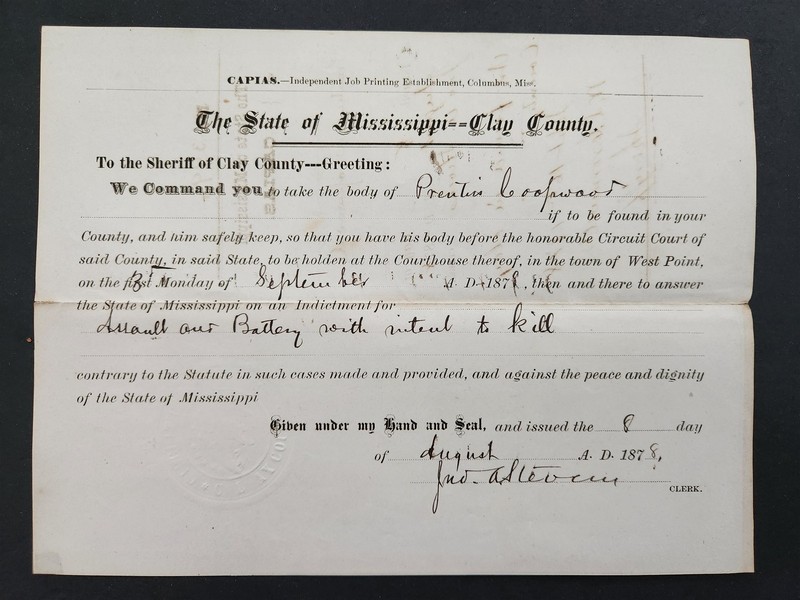 CAPIAS.—Independent Job Printing Establishment, Columbus, Miss.
The State of Mississippi==Clay County.
To the Sheriff of Clay County---Greeting:
We Command you to take the body of Prentis Coopwood
if to be found in your
County, and him safely keep, so that you have his body before the honorable Circuit Court of
said County, in said State, to be holden at the Courthouse thereof, in the town of West Point,
on the first Monday of September A. D. 1878, then and there to answer
the State of Mississippi on an Indictment for
Assault and Battery with intent to kill
contrary to the Statute in such cases made and provided, and against the peace and dignity
of the State of Mississippi
Given under my Hand and Seal, and issued the 8 day
of August A. D. 1878,
Jno. A Stevens
CLERK.